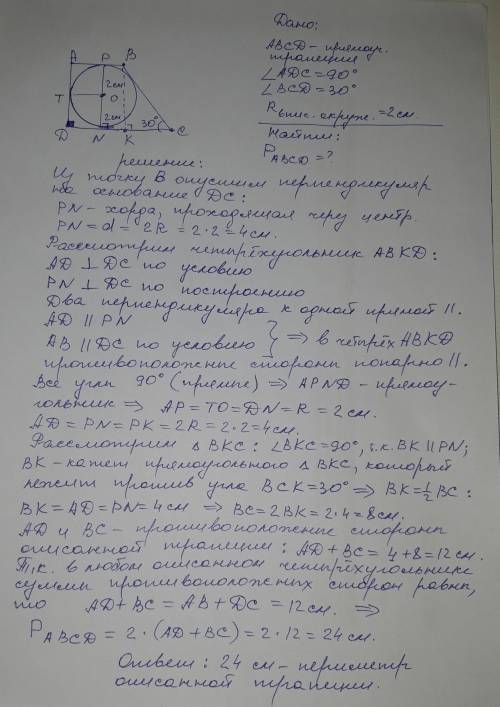 Дано:
ABCD – прямоуг.
трапеция
∠ADC = 90°
∠BCD = 30°
R впис. окруж. = 2 см.
Найти:
P ABCD = ?
A P B
2см
T O
2см 30°
D N K C
решение:
Из точки В опустим перпендикуляр
на основание DC:
PN – хорда, проходящая через центр.
PN = d = 2R = 2·2 = 4 см.
Рассмотрим четырёхугольник ABKD:
AD ⊥ DC по условию
PN ⊥ DC по построению
Два перпендикуляра к одной прямой ||.
AD || PN
AB || DC по условию } ⇒ в четырёх ABKD
противоположные стороны попарно ||.
Все углы 90° (прямые) ⇒ APND – прямоу-
гольник ⇒ AP = TO = DN = R = 2 см.
AD = PN = PK = 2R = 2·2 = 4 см.
Рассмотрим Δ BKC: ∠BKC = 90°, т.к. BK || PN;
BK – катет прямоугольного Δ BKC, который
лежит против угла BCK = 30° ⇒ BK = ½ BC:
BK = AD = PN = 4 см ⇒ BC = 2BK = 2·4 = 8 см.
AD и BC – противоположные стороны
описанной трапеции: AD + BC = 4 + 8 = 12 см.
Т.к. в любом описанном четырёхугольнике
суммы противоположных сторон равны,
то AD + BC = AB + DC = 12 см. ⇒
P ABCD = 2·(AD + BC) = 2·12 = 24 см.
Ответ: 24 см – периметр
описанной трапеции.